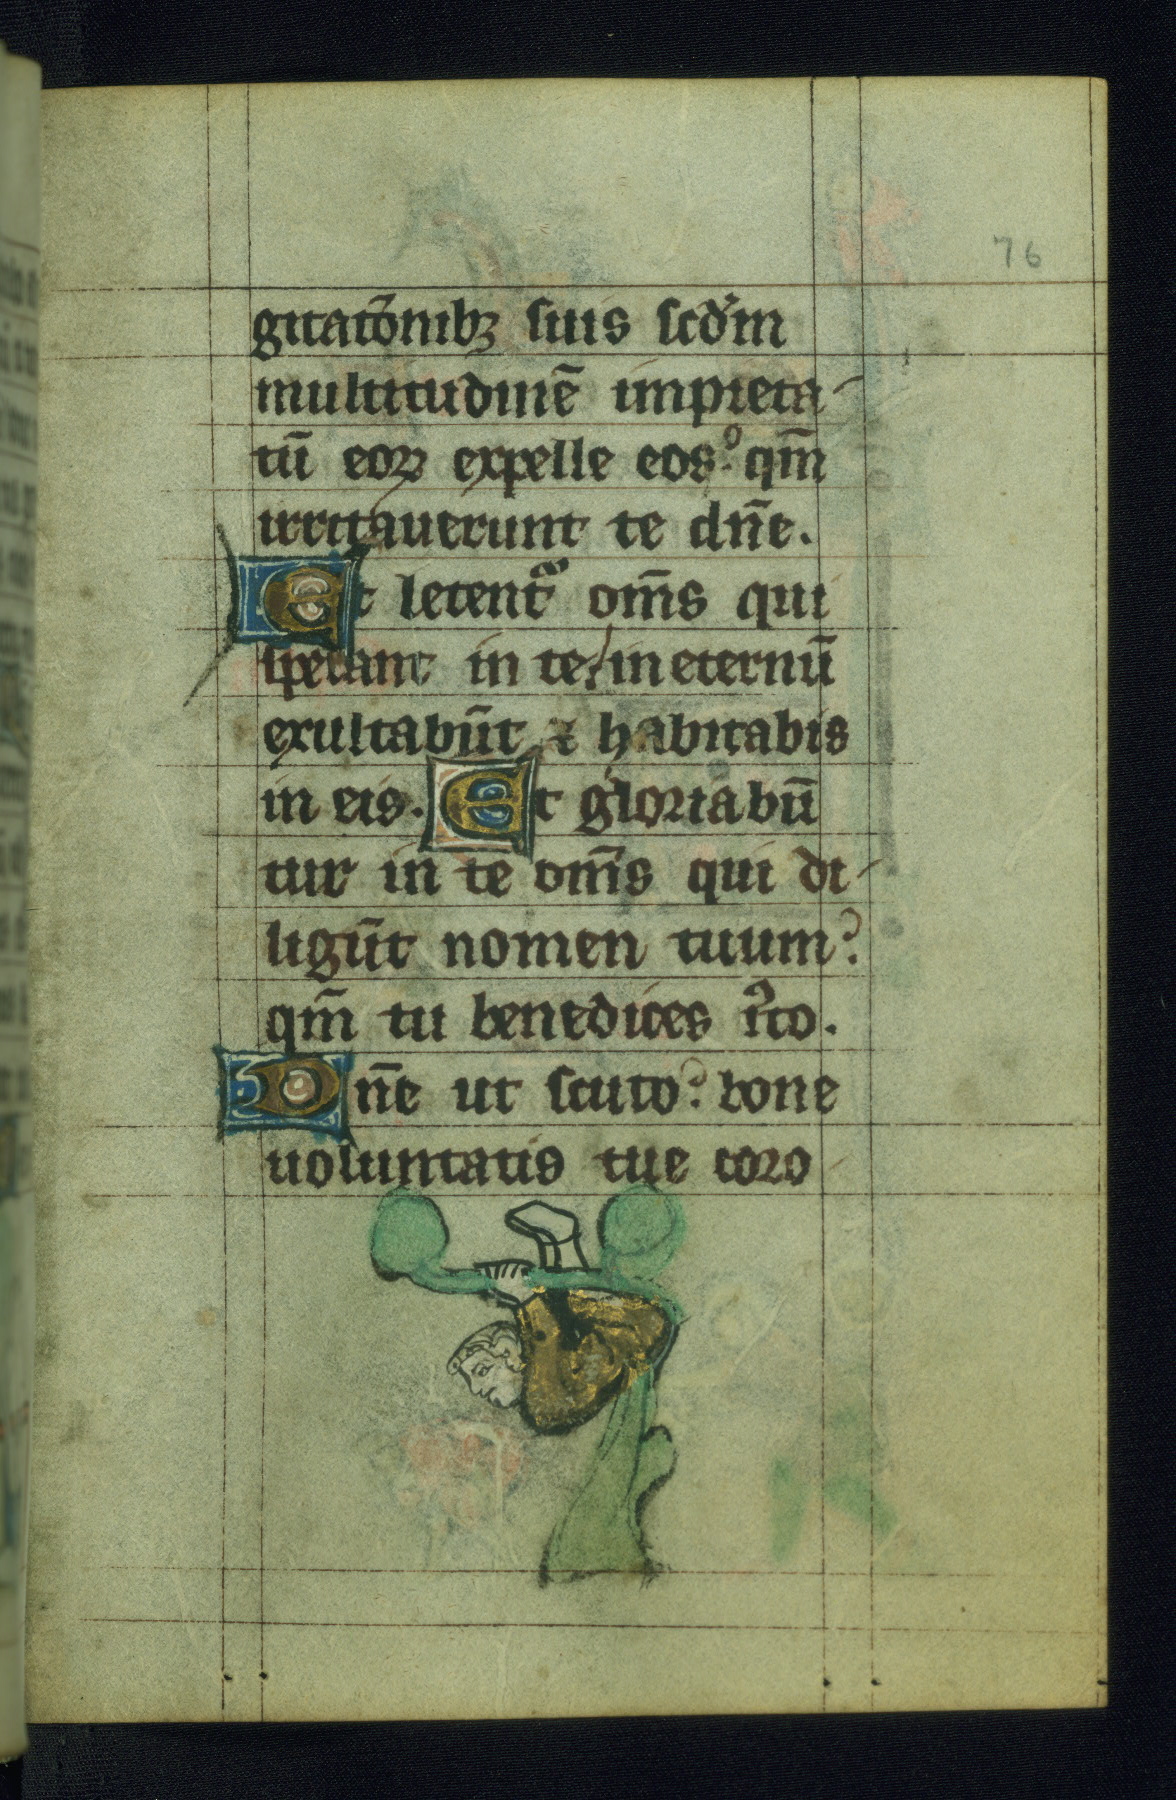 76
gitatōnibꝫ suis scd̾m
multitudinē impieta-
tū eoꝝ expelle eos: qm̄
irritauerunt te dn̄e.
Et letentᷓ om̄s qui
sperant in te: in eternū
exultabūt ⁊ habitabis
in eis. Et gloriabū
tur in te om̄s qui di-
ligūt nomen tuum:
qm̄ tu benedices iᷤto.
Dn̄e ut scuto: bone
uoluntatis tue coro